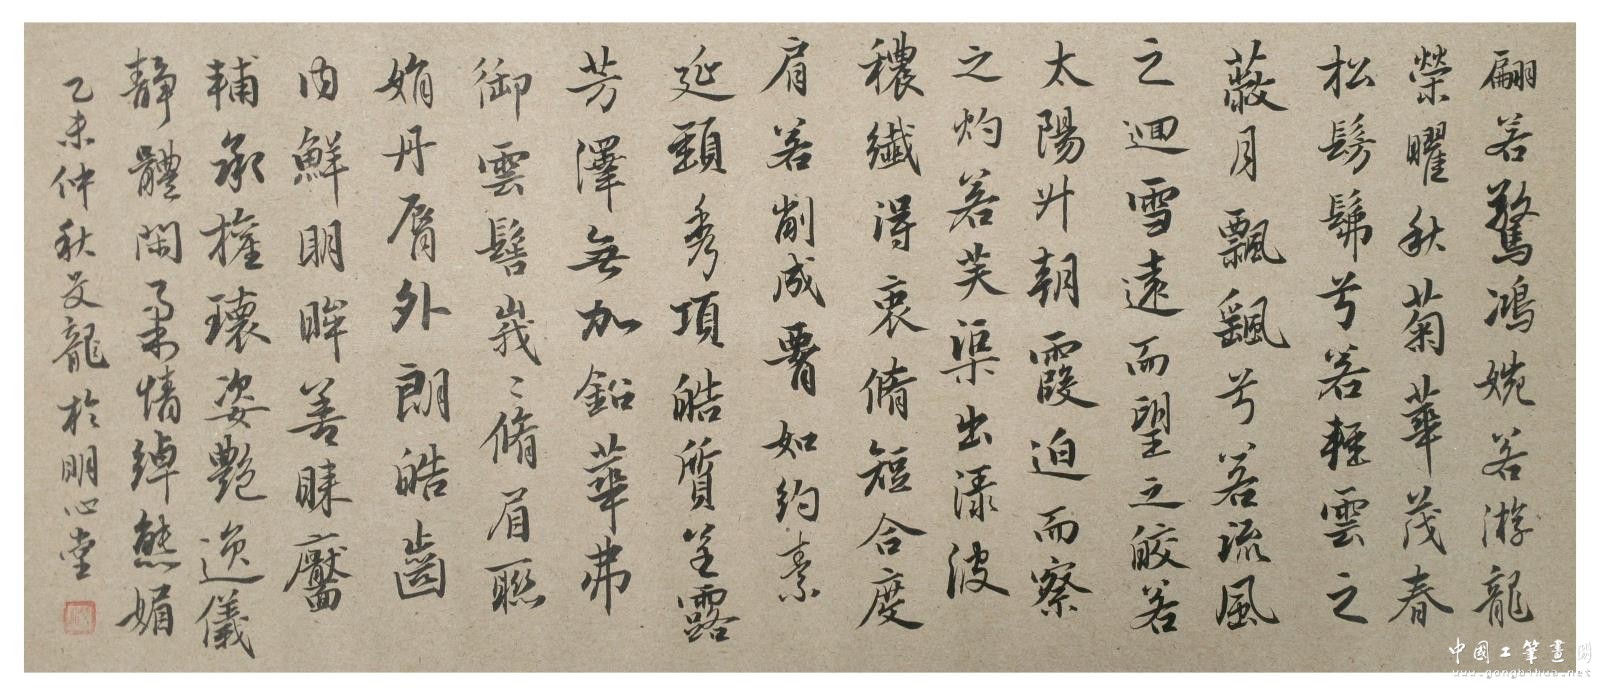 翩若驚鴻婉若游龍
榮曜秋菊華茂春
松髣髴兮若輕雲之
蔽月飄颻兮若流風
之迴雪遠而望之皎若
太陽升朝霞迫而察
之灼若芙渠出淥波
穠纖得衷脩短合度
肩若削成腰如約素
延頸秀項皓質呈露
芳澤無加鉛華弗
御雲髻峩〻脩眉聯
娟丹脣外朗皓齒
內鮮明眸善睐靨
輔承權瓌姿艷逸儀
靜體閑柔情綽態媚
乙未仲秋艾龍於明心堂
中國工筆畫網
www.gongbihua.net